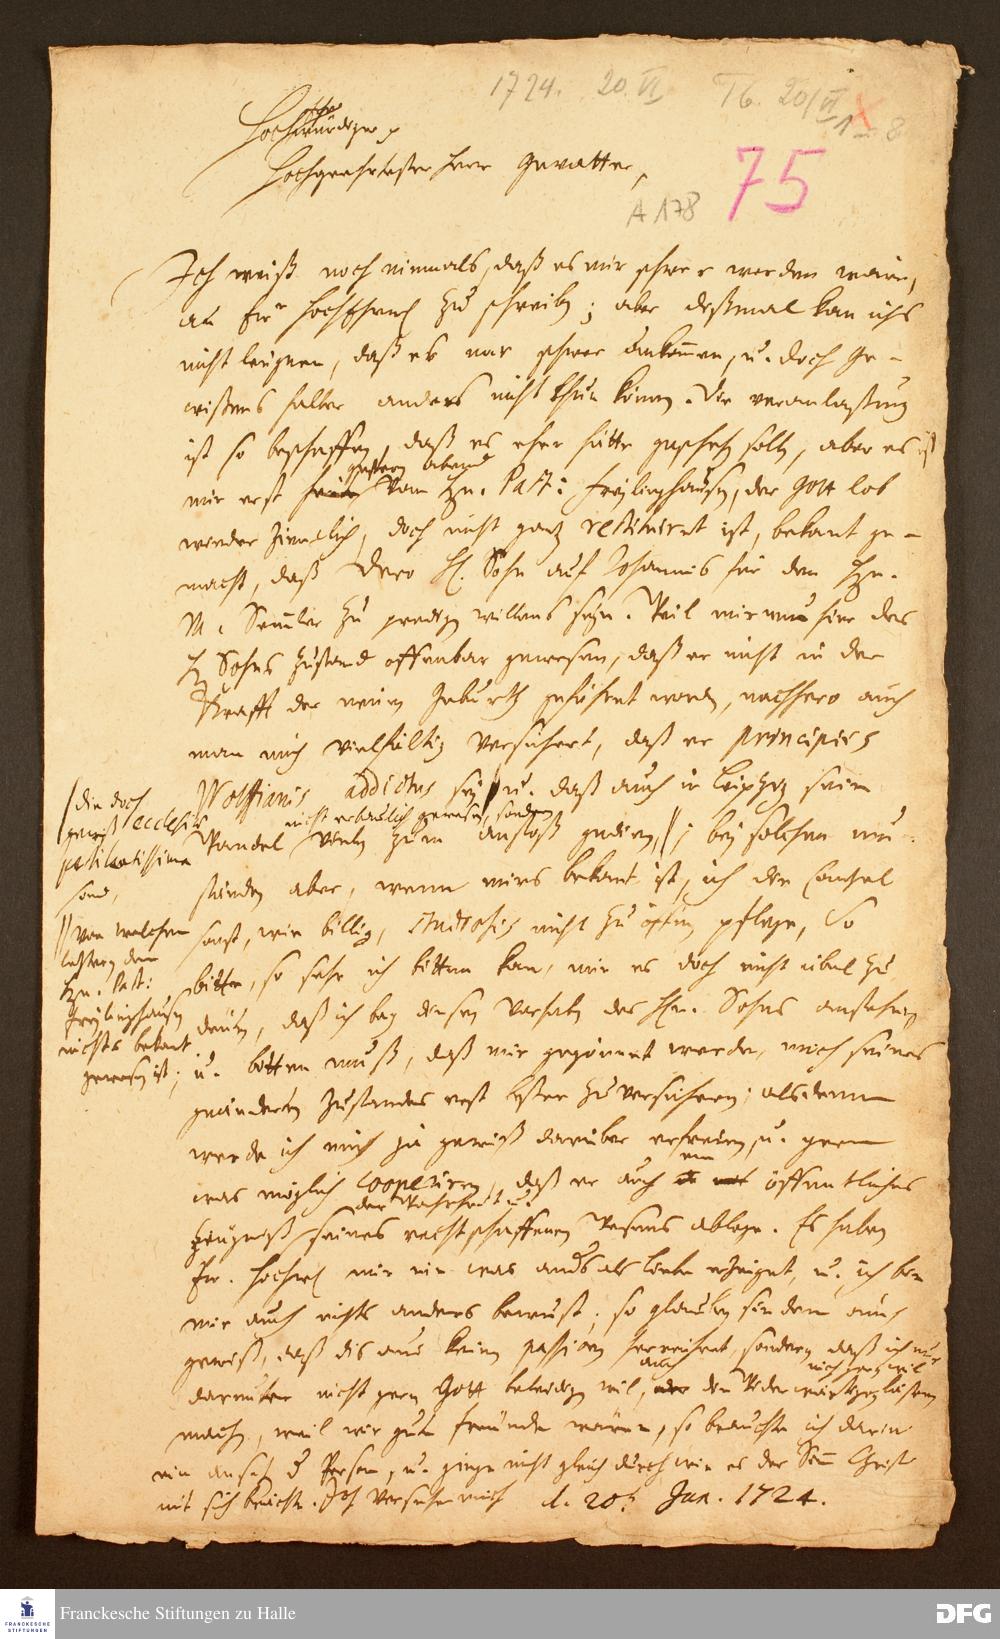 1724. 20. VI T6. 20/VI
1 – 8
Hochwürdiger
Hochgeehrtester Herr Gevatter,
75
A 178
Ich weiß noch niemals, daß es mir schwer worden wäre,
an Ew. Hochehrw. zu schreiben; aber dießmal kan ichs
nicht leugnen, daß es mir schwer ankommen, u. doch Ge-
wißens halber anders nicht thun können. Die veranlaßung
ist so beschaffen, daß es eher hätte geschehen sollen, aber es ist
mir erst gestern abend vom Hrn. Past: Freylinghausen, der Gott lob
wieder ziemlich, doch nicht gantz restituiret ist, bekant ge-
macht, daß Dero H. Sohn auf Johannis für den Hrn.
M. Semler zu predigen willens seyn. Weil mir nun hier des
H. Sohns Zustand offenbar gewesen, daß er nicht in der
Krafft der neuen Geburth gestanden, nachhero auch
man mich vielfältig versichert, daß er principiis
Wolffianis addictus sey u. daß auch in Leipzig sein
Wandel nicht erbaulich gewesen, sondern zum anstoß gedienet; bey solchen um-
ständen aber, wenn mirs bekant ist, ich die Cantzel
sonst, wie billig, Studiosis nicht zu öffnen pflege, So
bitte, so sehr ich bitten kan, mir es doch nicht übel zu
deuten, daß ich bey diesem Vorhaben des Hrn. Sohns anstehe
u. bitten muß, daß mir gegönnet werde, mich seines
geänderten Zustandes erst beßer zu versichern; alsdenn
werde ich mich ja gewiß darüber erfreuen, u. gern
was möglich cooperiren, daß er auch ein öffentliches
Zeugniß der Wahrheit u. seines rechtschaffenen Wesens ablege. Es haben
Ew. Hochehrw. mir nie was anders als Liebe erzeiget, u. ich bin
mir auch nichts anders bewust; so glauben sie denn auch
gewiß, daß dis aus keiner passion herrühret, sondern daß ich mich
darunter nicht gern Gott beleidigen wil, auch den Widerwärtigen nicht gern wil lästern
machen, weil wir gute freunde wären, so brauchte ich darin
ein ansehen der Person, u. ginge nicht gleich durch wie es der Sinn Christi
mit sich brächte. Ich versehe mich d. 20t. Jun. 1724.
die doch
gewiß Ecclesiae
pestilentissima
sind,
von welchem
letztern dem
Hrn. Past:
Freylinghausen
nichts bekant
gewesen ist;
FRANCKESCHE
STIFTUNGEN
Franckesche Stiftungen zu Halle
DFG